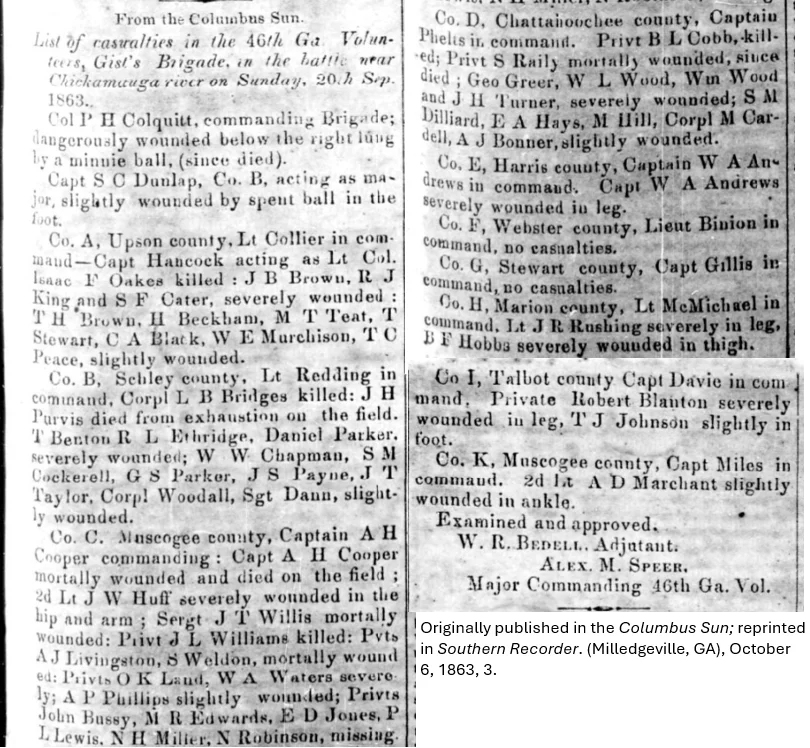 From the Columbus Sun.
List of casualties in the 46th Ga. Volun-
teers, Gist's Brigade, in the battle near
Chickamauga river on Sunday, 20th Sep.
1863.
Col P H Colquitt, commanding Brigade;
dangerously wounded below the right lung
by a minnie ball, (since died).
Capt S C Dunlap, Co. B, acting as ma-
jor, slightly wounded by spent ball in the
foot.
Co. A, Upson county, Lt Collier in com-
mand—Capt Hancock acting as Lt Col.
Isaac F Oakes killed : J B Brown, R J
King and S F Cater, severely wounded :
T H Brown, H Beckham, M T Teat, T
Stewart, C A Black, W E Murchison, T C
Peace, slightly wounded.
Co. B, Schley county, Lt Redding in
command, Corpl L B Bridges killed: J H
Purvis died from exhaustion on the field.
T Benton R L Ethridge, Daniel Parker,
severely wounded; W W Chapman, S M
Cockerell, G S Parker, J S Payne, J T
Taylor, Corpl Woodall, Sgt Dann, slight-
ly wounded.
Co. C. Muscogee county, Captain A H
Cooper commanding : Capt A H Cooper
mortally wounded and died on the field ;
2d Lt J W Huff severely wounded in the
hip and arm ; Sergt J T Willis mortally
wounded: Privt J L Williams killed: Pvts
A J Livingston, S Weldon, mortally wound
ed: Privts O K Land, W A Waters severe-
ly; A P Phillips slightly wounded; Privts
John Bussy, M R Edwards, E D Jones, P
L Lewis, N H Miller, N Robinson, missing.
Co. D, Chattahoochee county, Captain
Phelts in command. Privt B L Cobb, kill-
ed; Privt S Raily mortally wounded, since
died ; Geo Greer, W L Wood, Wm Wood
and J H Turner, severely wounded; S M
Dilliard, E A Hays, M Hill, Corpl M Car-
dell, A J Bonner, slightly wounded.
Co. E, Harris county, Captain W A An-
drews in command. Capt W A Andrews
severely wounded in leg.
Co. F, Webster county, Lieut Binion in
command, no casualties.
Co. G, Stewart county, Capt Gillis in
command, no casualties.
Co. H, Marion county, Lt McMichael in
command. Lt J R Rushing severely in leg,
B F Hobbs severely wounded in thigh.
Co I, Talbot county Capt Davie in com
mand. Private Robert Blanton severely
wounded in leg, T J Johnson slightly in
foot.
Co. K, Muscogee county, Capt Miles in
command. 2d Lt A D Marchant slightly
wounded in ankle.
Examined and approved.
W. R. BEDELL. Adjutant.
ALEX. M. SPEER,
Major Commanding 46th Ga. Vol.
Originally published in the Columbus Sun; reprinted
in Southern Recorder. (Milledgeville, GA), October
6, 1863, 3.